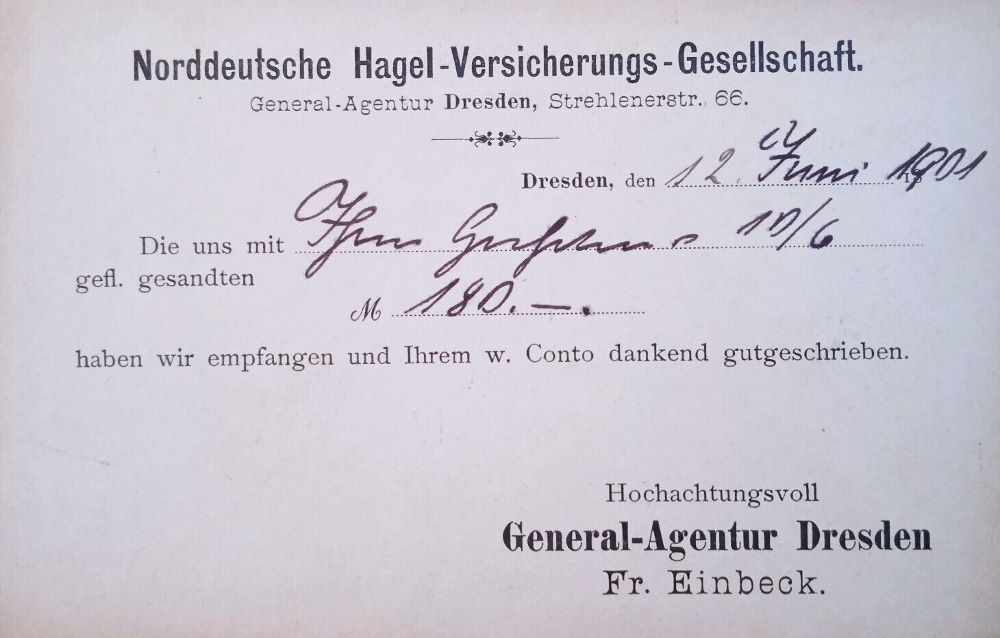 Norddeutsche Hagel-Versicherungs-Gesellschaft.
General-Agentur Dresden, Strehlenerstr. 66.
Dresden, den 12. Juni 1901
Die uns mit Ihrem 10/6
gefl. gesandten
M 180.—.
haben wir empfangen und Ihrem w. Conto dankend gutgeschrieben.
Hochachtungsvoll
General-Agentur Dresden
Fr. Einbeck.